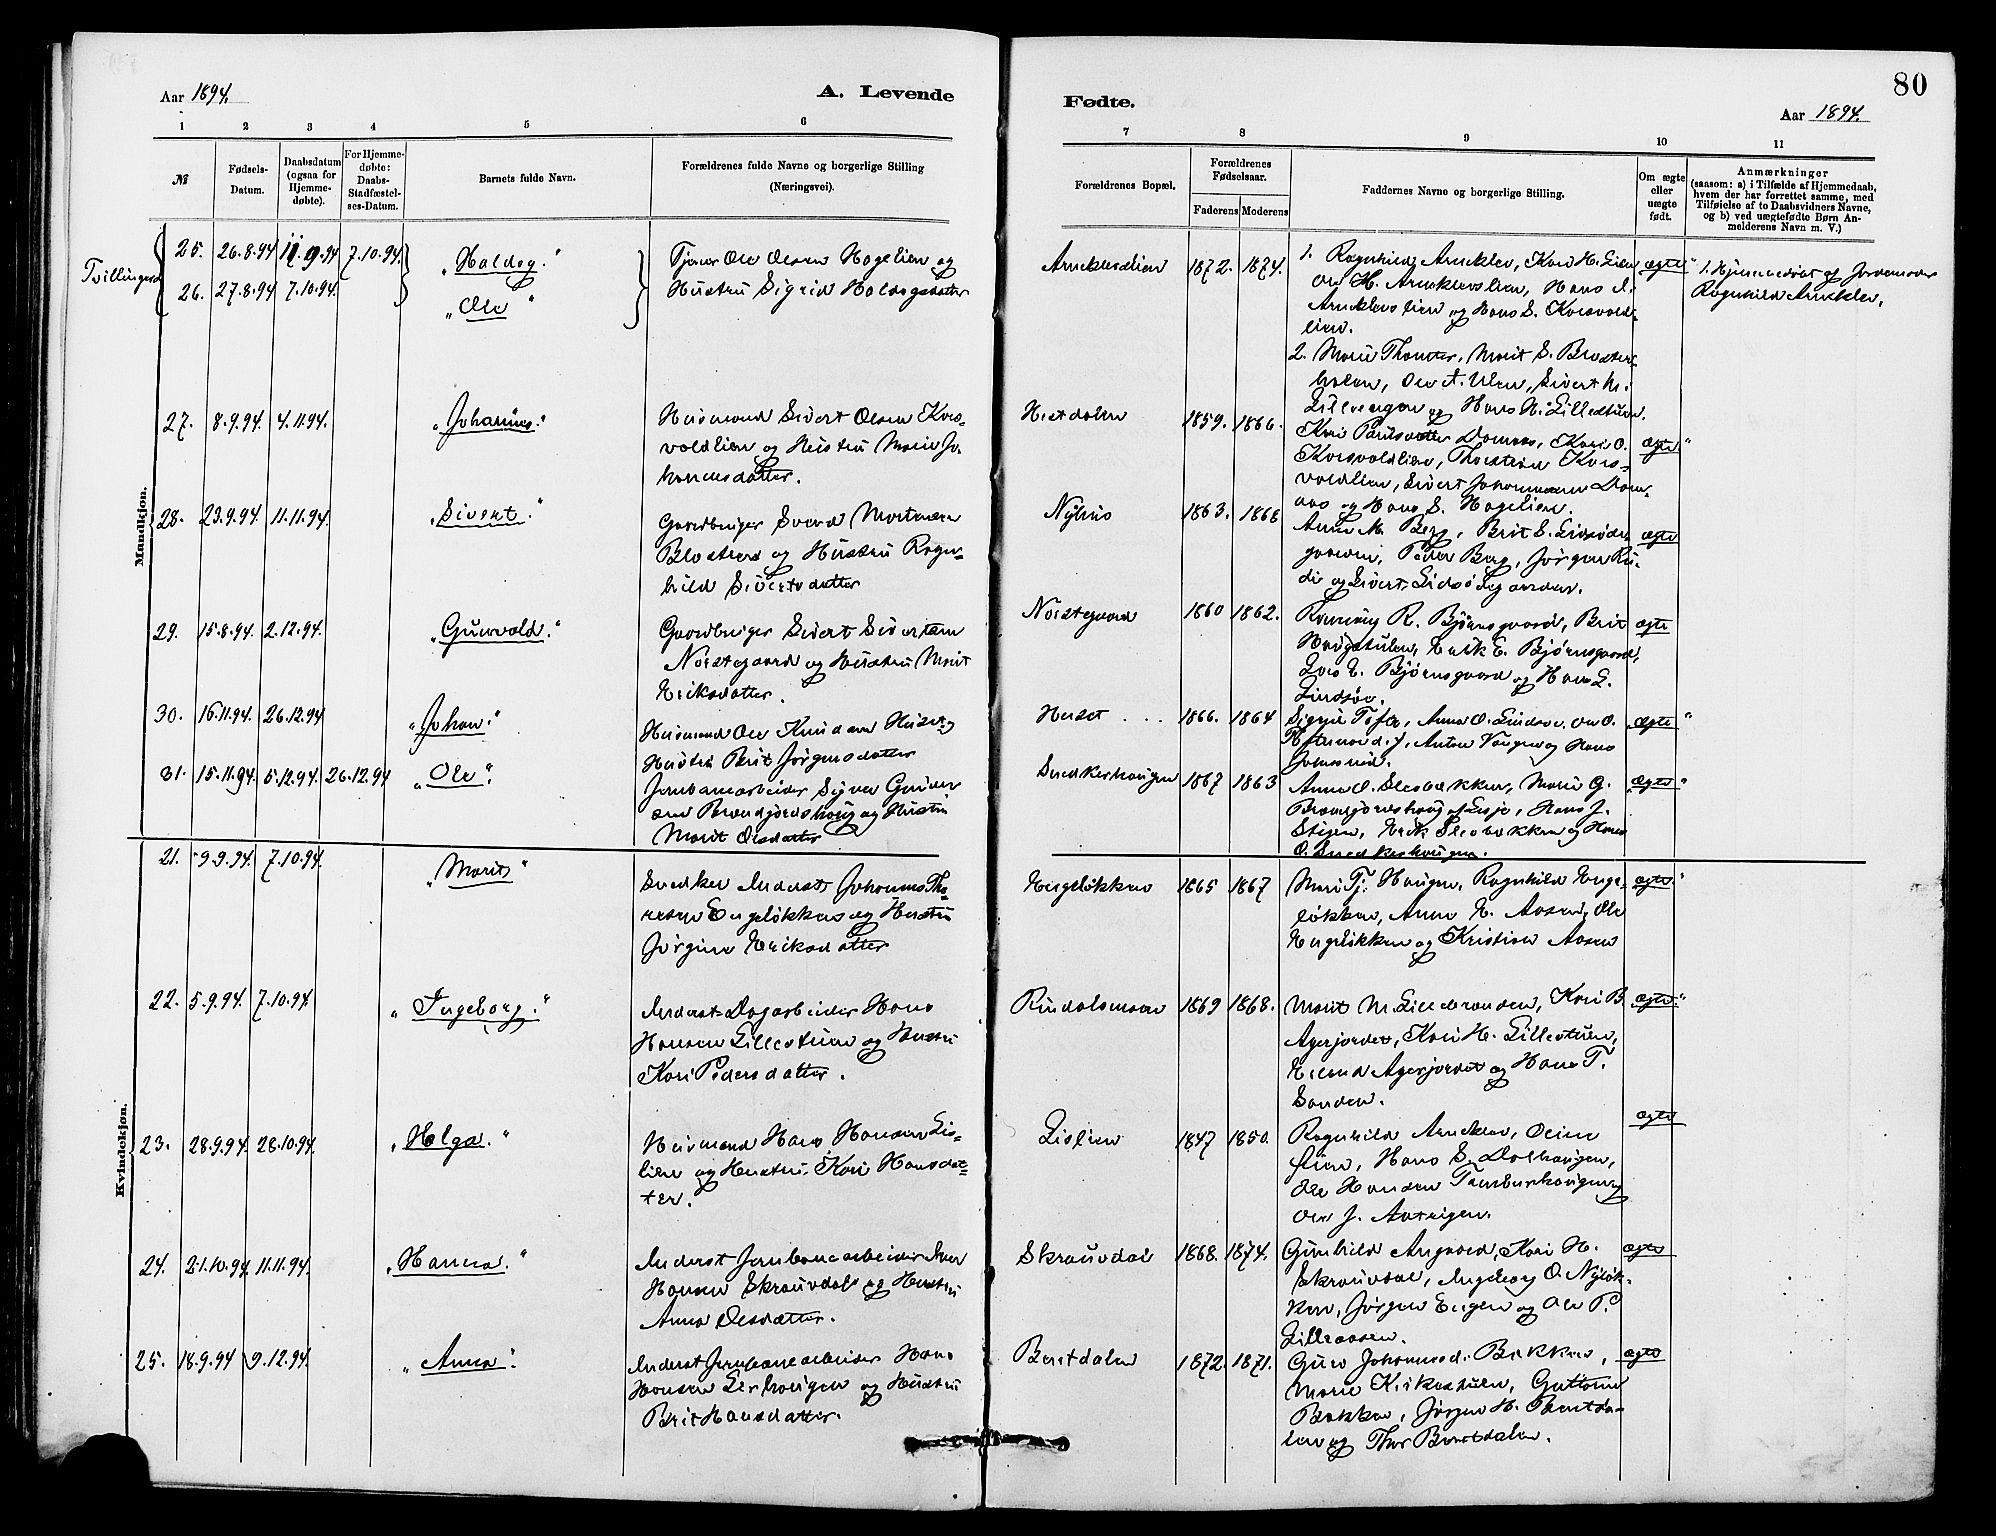 80
Aar 1894.
A. Levende
Fødte.
Aar 1894.
1 2 3 4 5 6
7 8 9 10 11
№
Fødsels-
Datum.
Daabsdatum
(ogsaa for
Hjemme-
døbte).
For Hjemme-
døbte:
Daabs-
Stadfæstel-
ses-Datum.
Barnets fulde Navn.
Forældrenes fulde Navne og borgerlige Stilling
(Næringsvei).
Forældrenes Bopæl.
Forældrenes
Fødselsaar.
Faderens Moderens
Faddernes Navne og borgerlige Stilling.
Om ægte
eller
uægte
født.
Anmærkninger
(saasom: a) i Tilfælde af Hjemmedaab,
hvem der har forrettet samme, med
Tilføielse af to Daabsvidners Navne,
og b) ved uægtefødte Børn An-
melderens Navn m. V.)
Mandkjøn.
Tvillinger
25. 26.8.94 11.9.94 7.10.94. „Haldog.“
26. 27.8.94 7.10.94. „Ole“
Tjener Ole Olsen Hagelien og
Hustru Sigrid Haldogsdatter
Arneklevlien 1872. 1874.
1. Ragnhild Arneklev, Kari H. Lien
Ole H. Arneklevslien, Hans
Arneklevslien og Hans S. Korsvold-
lien.
2. Marie Thomter, Marit S.
Ole A. Ulen, Sivert
og Hans H. Lillestuen.
ægte“
1. Hjemmedøbt af Jordemoder
Ragnhild Arneklev.
27. 8.9.94. 4.11.94. „Johannes.“
Husmand Sivert Olsen Kors-
voldlien og Hustru Marie Jo-
hannesdatter.
1859. 1866.
Kari Paulsdatter Kari O.
Korsvoldlien, Thorstein Kors-
voldlien, Sivert Johannesen Dom-
aas og Hans S. Hagelien.
ægte“
28. 23.9.94. 11.11.94. „Sivert.“
Gaardbruger Svend Mortensen
og Hustru Ragn-
hild Sivertsdatter
Nyhus 1863. 1868
Anne M. Berg, Brit S.
Peder Berg, Jörgen Ru-
di og Sivert
ægte
29. 15.8.94. 2.12.94. „Gunvald.“
Gaardbruger Sivert Sivertsen
Nordegaard og Hustru Marit
Eriksdatter.
1860 1862.
R. Bjørnsgaard, Brit
Haugstulen, Erik E. Bjørnsgaard,
Lars E. Bjørnsgaard og Hans L.
ægte
30. 16.11.94. 26.12.94 „Johan.“
Husmand Ole Knudsen og
Hustru Brit Jørgensdatter
1866. 1864
Signe Tofte, Anna O. Ole O.
Anton og Hans
„ægte“
31. 15.11.94. 5.12.94. 26.12.94 „Ole“.
Jernbanearbeider Syver Gunder-
sen og Hustru
Marit Olsdatter
Snedkerhaugen 1867 1863
Anne O. Slesbakken, Marie G.
Hans J.
Stigen, Erik Slesbakken og Hans
O. Snedkerhaugen.
„ægte“
Kvindekjøn.
21. 9.9.94. 7.10.94. „Marit“
Snedker Inderst Johannes Tho-
resen Engeløkken og Hustru
Jørgine Eriksdatter
Engeløkken 1865 1867
Mari Tj. Haugen, Ragnhild Enge-
løkken, Anne E. Aasen, Ole
Engeløkken og Kristian Aasen
ægte.“
22. 5.9.94. 7.10.94 „Ingeborg.“
Inderst Dagarbeider Hans
Hansen Lillestuen og Hustru
Kari Pedersdatter.
1869 1868.
Marit M. Kari B
Agerjordet, Kari H. Lillestuen,
Erland Agerjordet og Hans T.
Sanden.
ægte“
23. 28.9.94. 28.10.94. „Helga.“
Husmand Hans Hansen Lis-
lien og Hustru Kari Hansdat-
ter.
Lislien 1847 1850.
Ragnhild Arneklev,
Hans S. Dalhaugen,
Ole Hansen og
Ole J.
ægte
24. 21.10.94. 11.11.94. „Hanna.“
Inderst Jernbanearbeider Iver
Hansen Skrauvdal og Hustru
Anna Olesdatter.
Skrauvdal 1868. 1874.
Gunhild Angaard, Kari H.
Skrauvdal, Ingeborg O. Nyløk-
ken, Jørgen Engen og Ole P.
Lilleaasen.
ægte
25. 18.9.94 9.12.94. „Anna“.
Inderst Jernbanearbeider Hans
Hansen og Hustru
Brit Hansdatter.
1872. 1871.
Guro Johannesd. Bakken,
Marie Kirkestuen, Guttorm
Bakken, Jørgen H.
og Thor
ægte